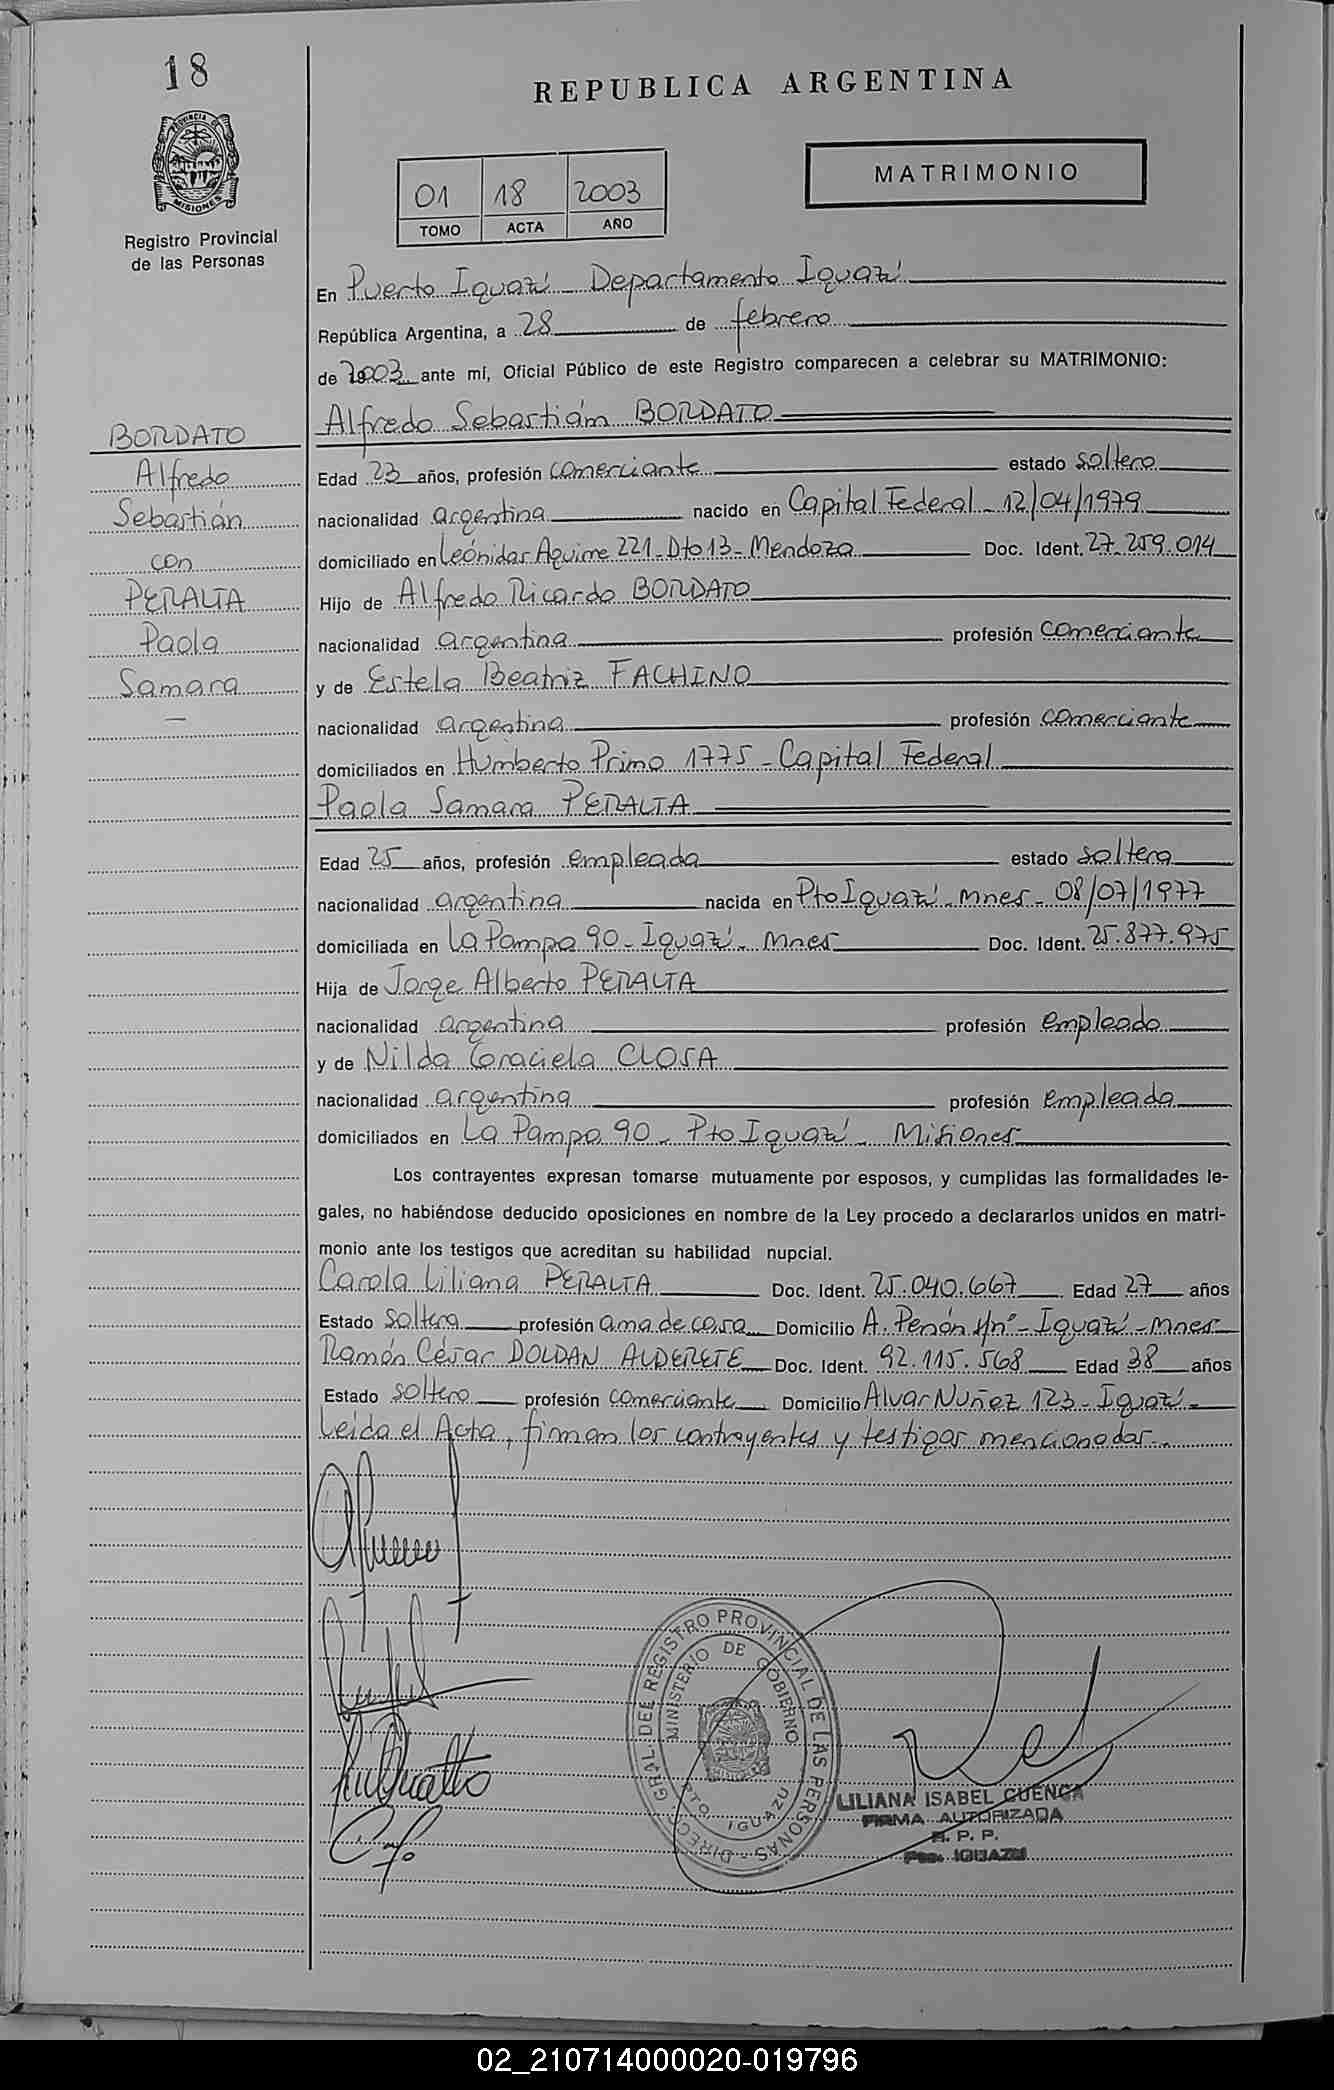 18
REPUBLICA ARGENTINA
MATRIMONIO
01 18 2003
TOMO ACTA AÑO
PROVINCIA DE MISIONES
Registro Provincial
de las Personas
En Puerto Iguazú - Departamento Iguazú
República Argentina, a 28 de febrero
de 2003 ante mí, Oficial Público de este Registro comparecen a celebrar su MATRIMONIO:
Alfredo Sebastián BORDATO
BORDATO
Alfredo
Sebastián
con
PERALTA
Paola
Samara
Edad 23 años, profesión comerciante estado soltero
nacionalidad argentina nacido en Capital Federal - 12/04/1979
domiciliado en Leónidas Aguirre 221 - Dto 13 - Mendoza Doc. Ident. 27.259.014
Hijo de Alfredo Ricardo BORDATO
nacionalidad argentina profesión comerciante
y de Estela Beatriz FACHINO
nacionalidad argentina profesión comerciante
domiciliados en Humberto Primo 1775 - Capital Federal
Paola Samara PERALTA
Edad 25 años, profesión empleada estado soltera
nacionalidad argentina nacida en Pto Iguazú - Mnes - 08/07/1977
domiciliada en La Pampa 90 - Iguazú - Mnes Doc. Ident. 25.877.975
Hija de Jorge Alberto PERALTA
nacionalidad argentina profesión empleado
y de Nilda Graciela CLOSA
nacionalidad argentina profesión empleada
domiciliados en La Pampa 90 - Pto Iguazú - Misiones
Los contrayentes expresan tomarse mutuamente por esposos, y cumplidas las formalidades le-
gales, no habiéndose deducido oposiciones en nombre de la Ley procedo a declararlos unidos en matri-
monio ante los testigos que acreditan su habilidad nupcial.
Carola Liliana PERALTA Doc. Ident. 25.040.667 Edad 27 años
Estado soltera profesión ama de casa Domicilio A. Perón s/nº - Iguazú - Mnes
Ramón César DOLDAN ALDERETE Doc. Ident. 92.115.568 Edad 38 años
Estado soltero profesión comerciante Domicilio Alvar Nuñez 123 - Iguazú -
Leída el Acta, firman los contrayentes y testigos mencionados.
DIRECC. GRAL. DEL REGISTRO PROVINCIAL DE LAS PERSONAS
MINISTERIO DE GOBIERNO
PTO. IGUAZU
LILIANA ISABEL CUENCA
FIRMA AUTORIZADA
R. P. P.
Pto. IGUAZU
02_210714000020-019796